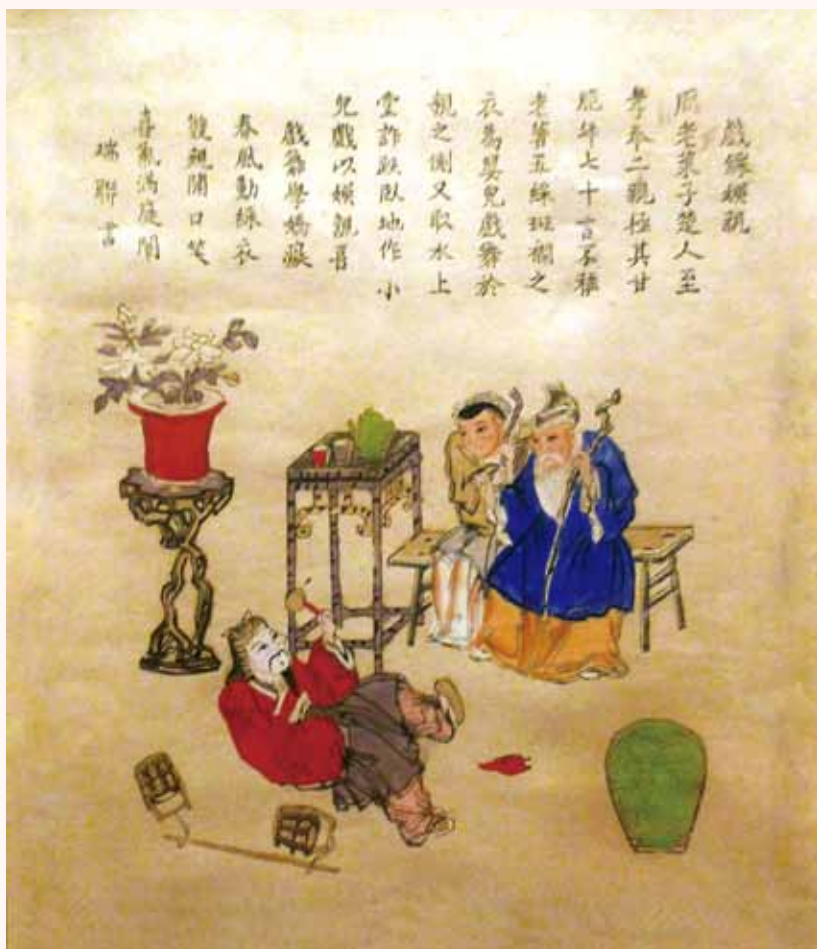 戲綵娛親
周老萊子楚人至
孝奉二親極其甘
脆年七十言不稱
老著五綵斑斕之
衣為嬰兒戲舞於
親之側又取水上
堂詐跌臥地作小
兒戲以娛親喜
戲舞學嬌癡
春風動綵衣
雙親開口笑
喜氣滿庭闈
瑞聯書